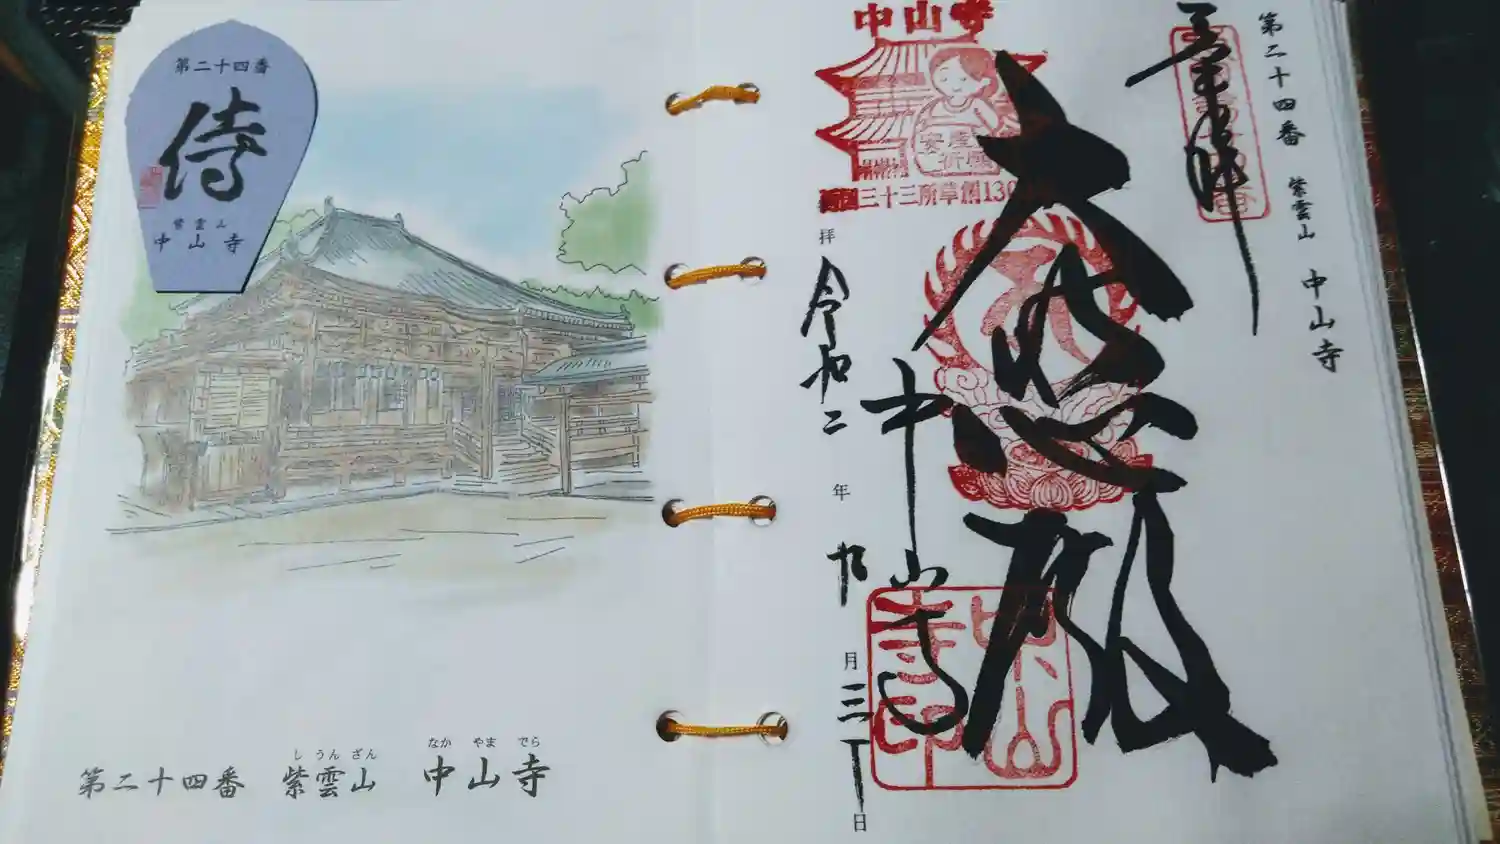 第二十四番
侍
紫雲山
中山寺
第二十四番 紫雲山 中山寺
し うん ざん なか やま でら
第二十四番 紫雲山 中山寺
奉拝
大悲殿
中山寺
中山寺
安産
祈願
三十三所草創130
拝
令和二年九月三十日
中山寺印